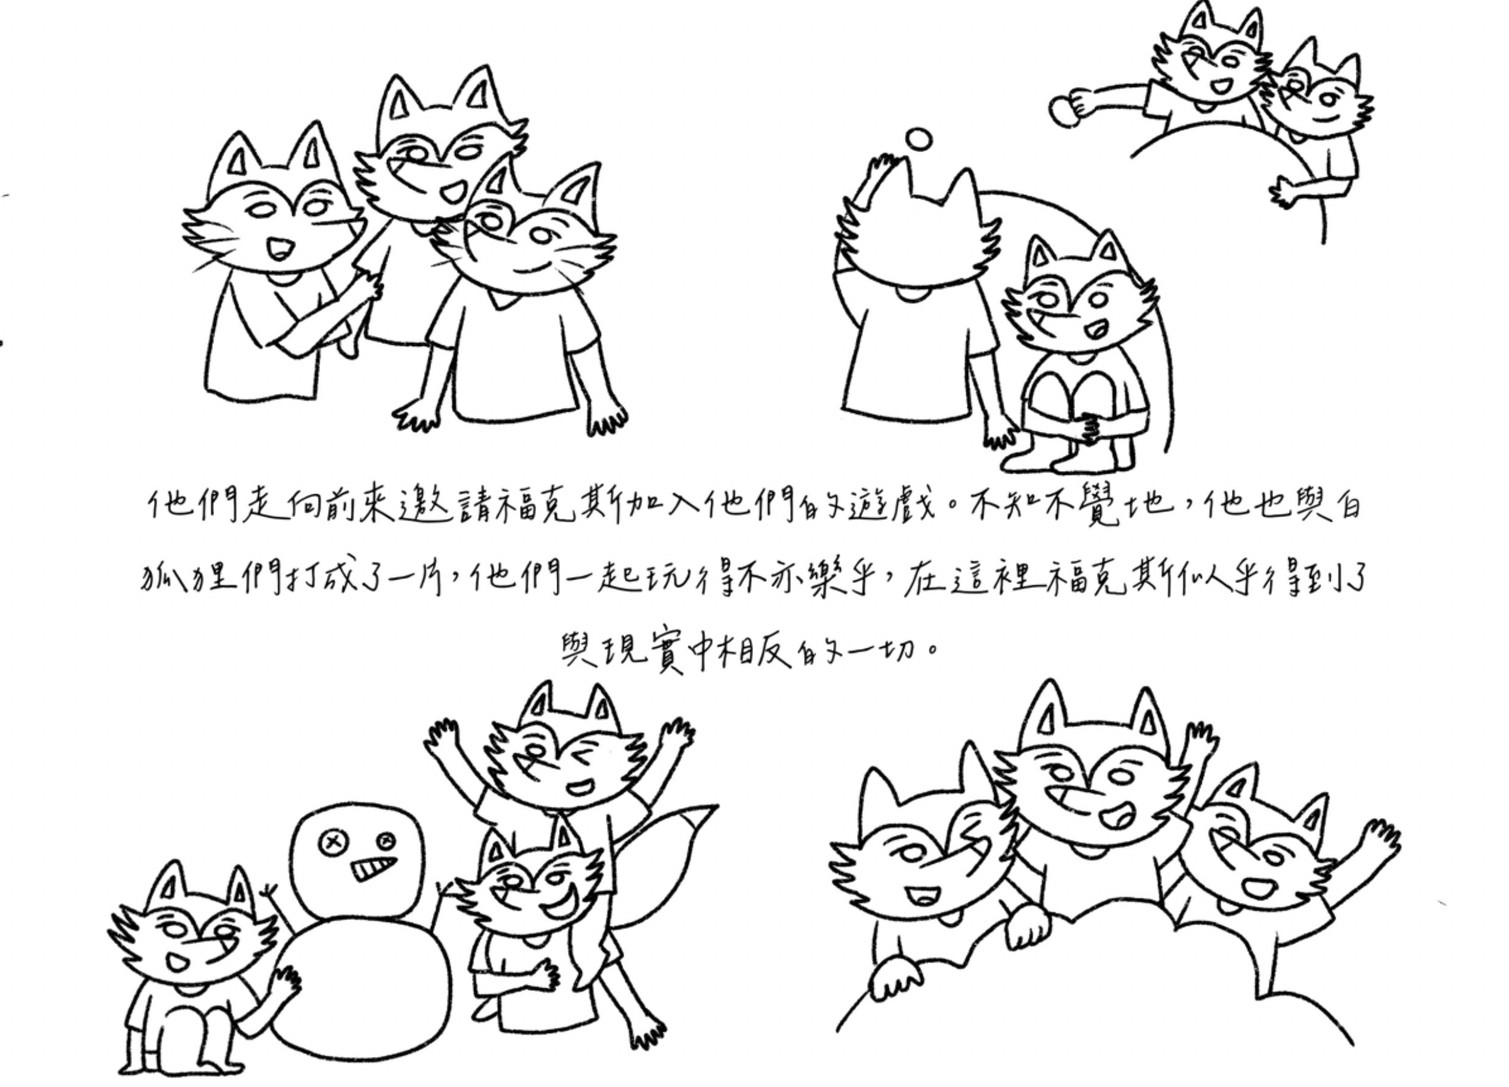 他們走向前來邀請福克斯加入他們的遊戲。不知不覺地，他也與白
狐狸們打成了一片，他們一起玩得不亦樂乎，在這裡福克斯似乎得到了
與現實中相反的一切。